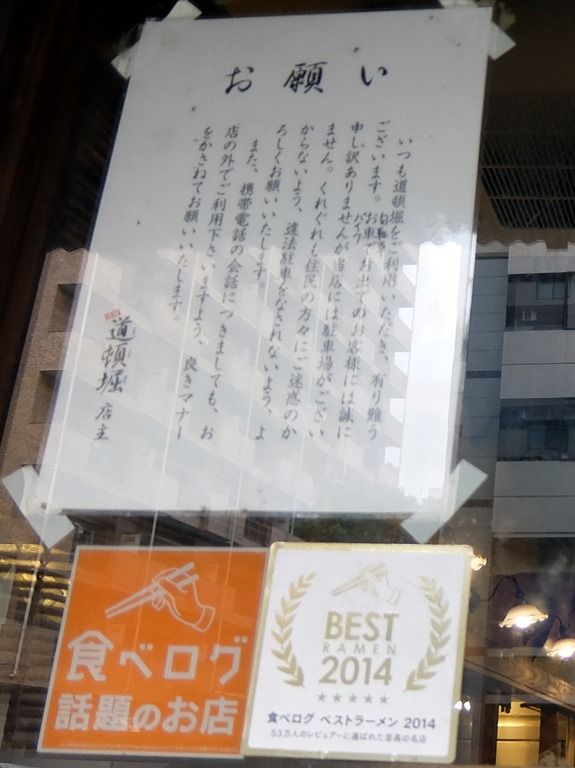 お願い
いつも道頓堀をご利用いただき、有り難う
ございます。お車でお出でのお客様には誠に
自転車
バイク
申し訳ありませんが当店には駐車場がござい
ません。くれぐれも住民の方々にご迷惑のか
からないよう、違法駐車をなされないよう、よ
ろしくお願いいたします。
また、携帯電話の会話につきましても、お
店の外でご利用下さいますよう、良きマナー
をかさねてお願いいたします。
道頓堀 店主
食べログ
話題のお店
BEST
RAMEN
2014
★★★★★
食べログ ベストラーメン 2014
53万人のレビュアーに選ばれた至高の名店